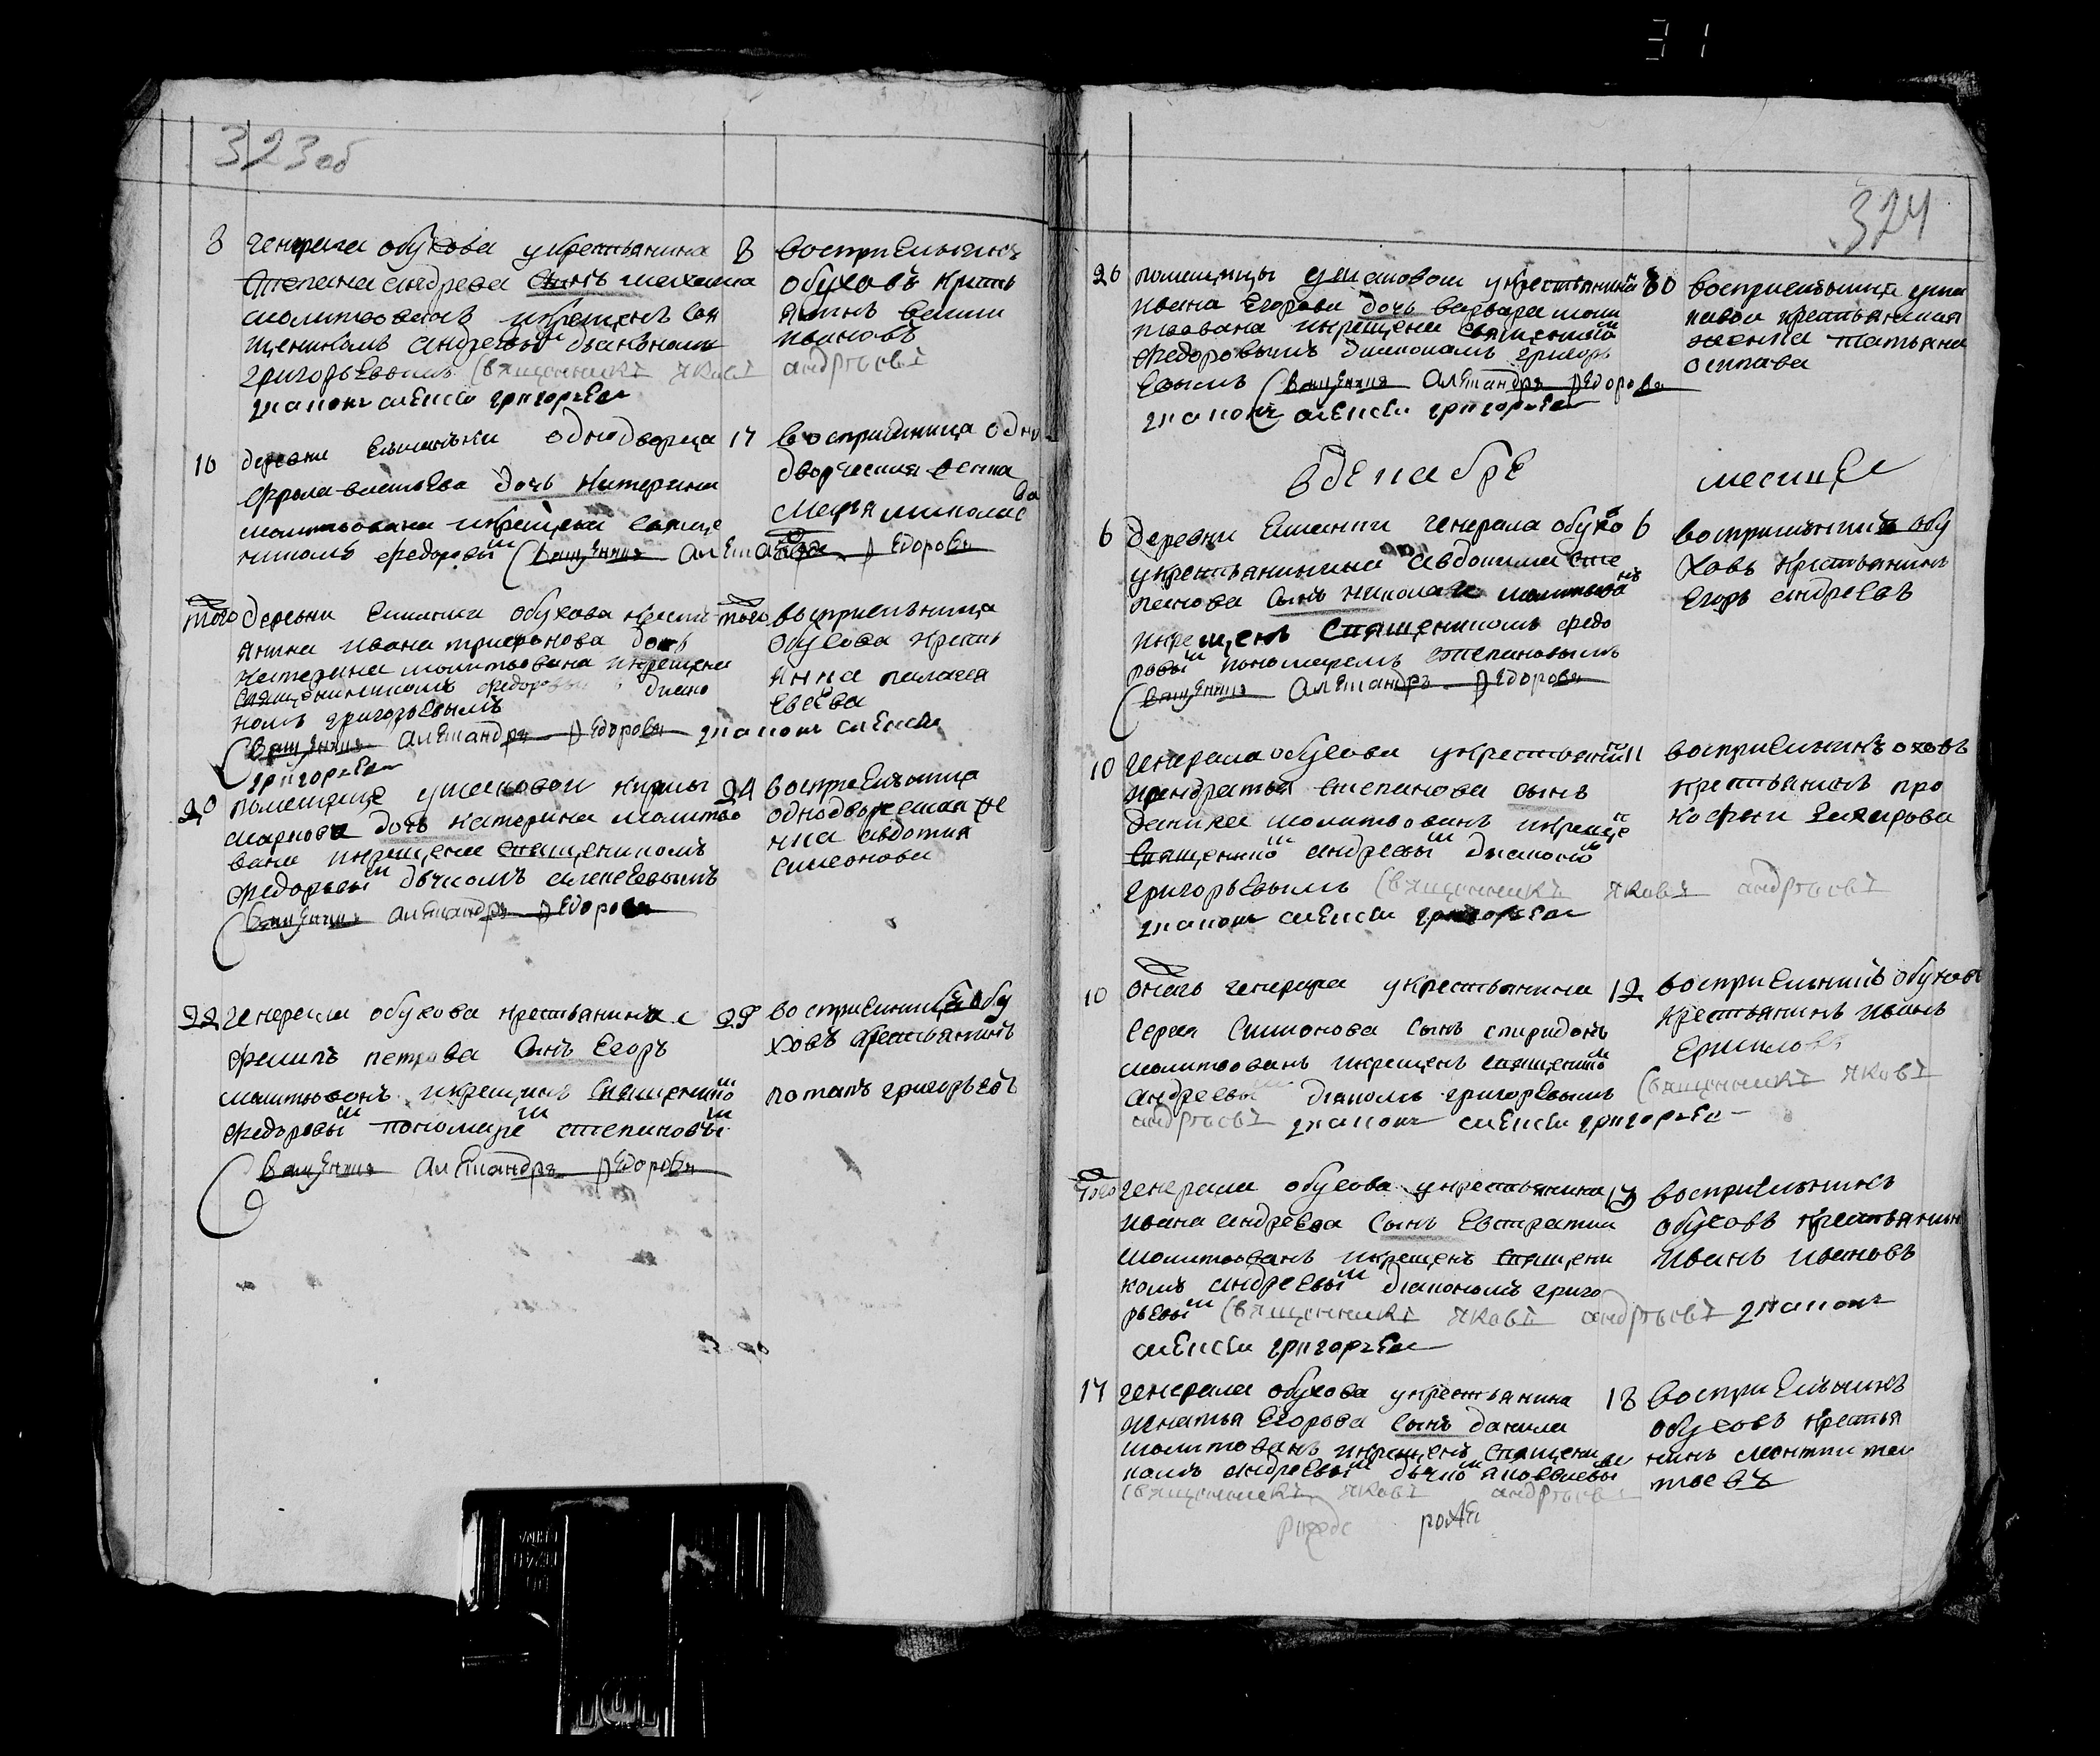 31
323об
8 генрала обухова укрестьянина 8
Степана андреева сынъ михаила
молитвованъ икрещенъ свя
щеникомъ андреевы дьякономъ
григорьевымъ священникъ яковъ
дьяконъ алексей григорьевъ
восприемникъ
обуховъ кресть
янинъ
ивановъ
андреевъ
16 деревни однодворца 17
фрола дочь катерина
молитвована икрещена свяще
никомъ федоровы священникъ александръ федоровъ
восприемница одно
дворческая женка
марья
того деревни обухова кресть того
янина ивана трифонова дочь
катерина молитвована икрещена
священникомъ федоровы диако
номъ григорьевымъ
священникъ александръ федоровъ диаконъ алексей
григорьевъ
восприемница
обухова кресть
янка палагея
20 помещице ушаковой 24
маркова дочь катерина молитво
вана икрещена священикомъ
федоровы дьчкомъ алексеевымъ
священникъ александръ федоровъ
восприемница
однодворческая же
нка авдотия
симеонова
22 генерала обухова крестьянина
филипъ петрова сынъ егоръ
молитвованъ икрещинъ священико
федоровы пономаре степановы
священникъ александръ федоровъ
восприемникъ обу
ховъ крестьянинъ
потапъ григорьевъ
324
26 помещицы ушаковой укрестьянина 30
ивана егорова дочь варвара моли
твована икрещена священико
федоровымъ диакономъ григорь
евымъ священникъ александръ федоровъ
диаконъ алексеи григорьевъ
восприемница уша
кавои крестьянская
женка татьяна
осипава
вдекабре месяце
6 деревни генерала обухо 6
укрестьянина авдокима сте
панова сынъ николаи молитвова
икрещенъ священикомъ федо
ровы пономаремъ степановымъ
священникъ александръ федоровъ
восприемникъ обу
ховъ крестьянинъ
егоръ андреевъ
10 генерала обухова укрестьянин 11
кондратья степанова сынъ
данила молитвованъ икреще
священико андреевы дьяконо
григорьевымъ священникъ яковъ андреевъ
диаконъ алексеи григорьевъ
восприемникъ
крестьянинъ про
кофеи
10 онаго генерала укрестьянина 12
сергея симионова сынъ спиридонъ
молитвованъ икрещенъ священико
андреевы диакомъ григоревымъ священникъ яковъ
андреевъ диаконъ алексеи григорьевъ
восприемникъ обуховъ
крестьянинъ иванъ
того генерала обухова укрестьянина 13
ивана андреева сынъ евстратии
молитвованъ икрещенъ священи
комъ андреевы диакономъ григо
рьевы священникъ яковъ андреевъ диаконъ
алексеи григорьевъ
восприемникъ
обуховъ крестьянин
иванъ ивановъ
17 генерала обухова укрестьянина 18
игнатья егорова сынъ данила
молитвованъ икрещенъ священи
комъ андреевы дьчко
священникъ яковъ андреевъ
восприемникъ
обуховъ крестья
нинъ